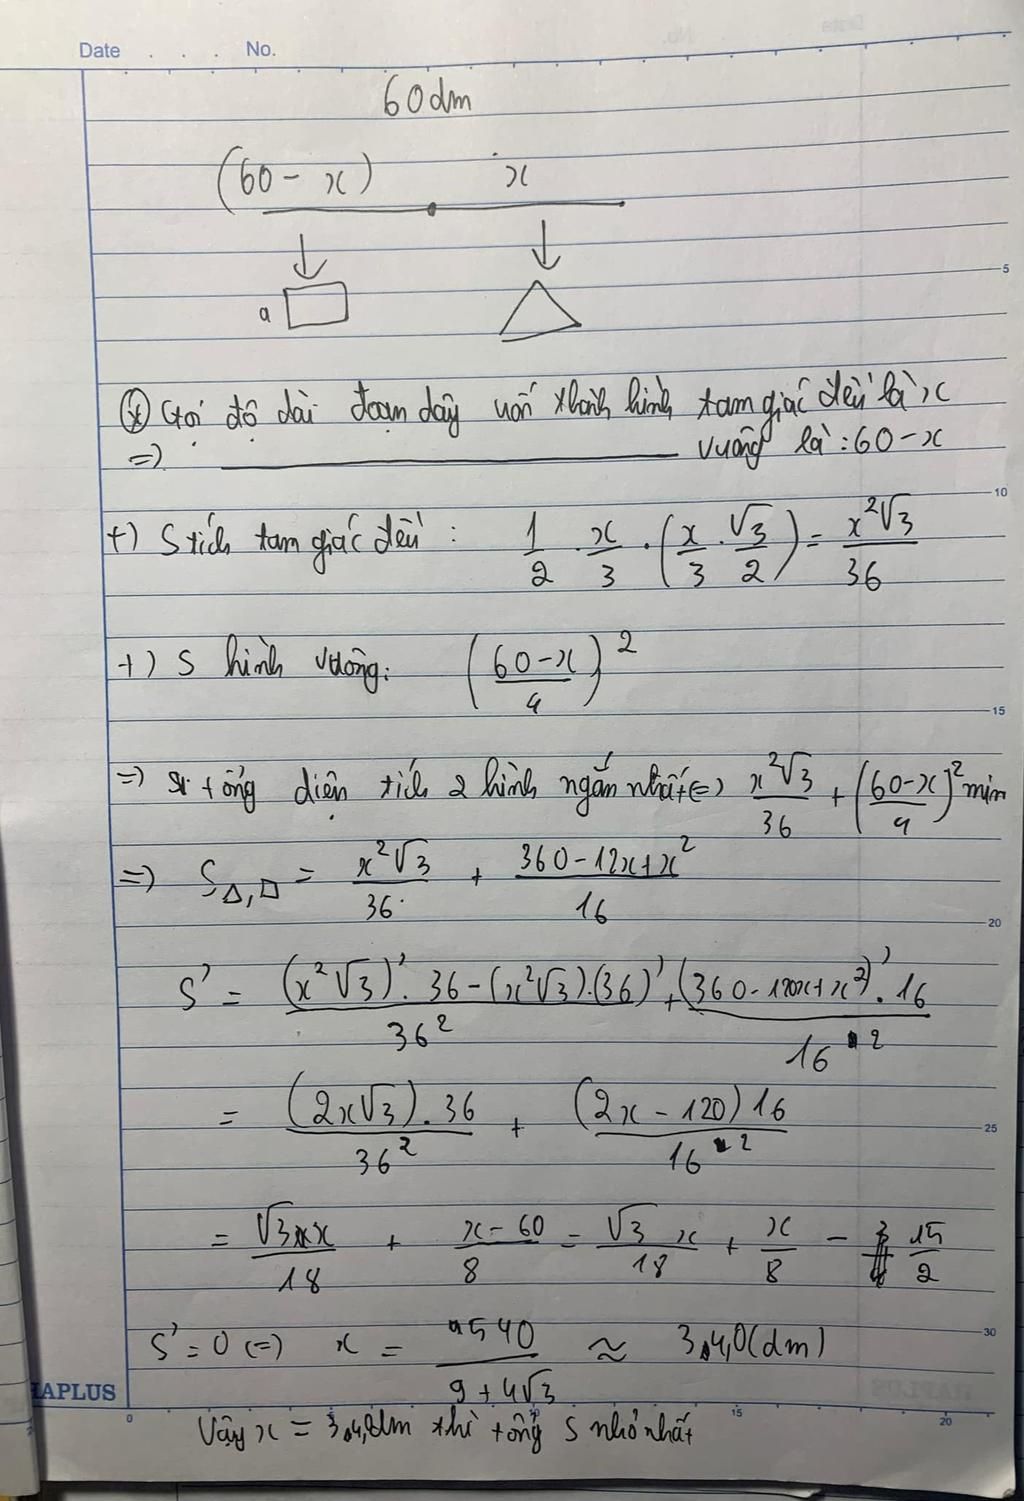 Date . . . No.
60dm
(60 - x) x
a
5
⊛ Gọi độ dài đoạn dây uốn thành hình tam giác đều là x
=> ——— vuông là : 60 - x
10
+) S tích tam giác đều : 1/2 . x/3 . (x/3 . √3/2) = x²√3/36
+) S hình vuông: ((60-x)/4)²
15
=> tổng diện tích 2 hình ngắn nhất <=> x²√3/36 + ((60-x)/4)² min
=> S△,□ = x²√3/36 + (360-12x+x²)/16
20
S' = ((x²√3)'. 36 - (x²√3).(36)')/36² + ((360-120x+x²)'. 16)/16²
= ((2x√3). 36)/36² + ((2x - 120)16)/16²
25
= √3x/18 + (x-60)/8 = √3/18 x + x/8 - 15/2
30
S' = 0 <=> x = 540/(9+4√3) ≈ 34,0(dm)
HAPLUS
0 5 10 15 20
Vậy x = 34,0dm thì tổng S nhỏ nhất